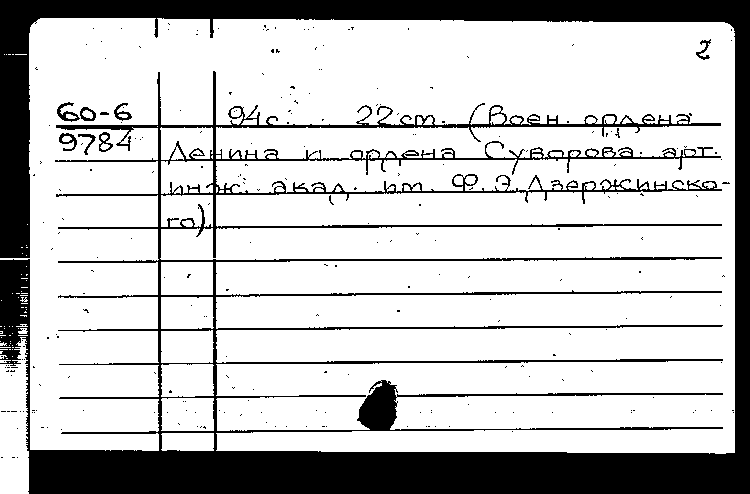 2
60-6 94с. 22 см. (Воен. ордена
9784 Ленина и ордена Суворова арт.
инж. акад. им. Ф.Э.Дзержинско-
го)